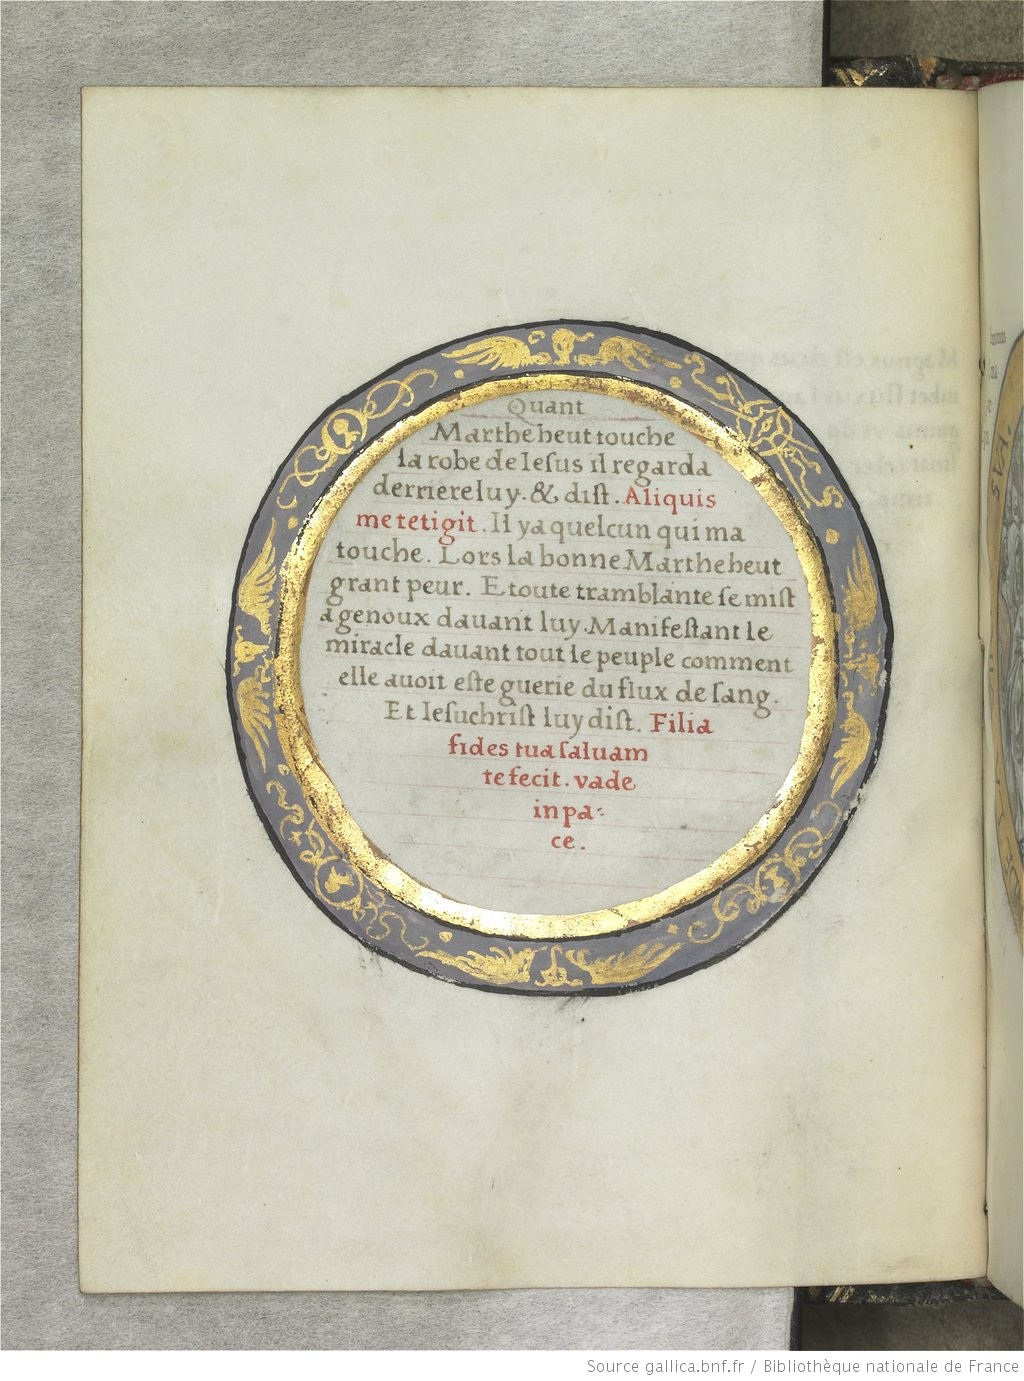 Quant
Marthe heut touche
la robe de Iesus il regarda
derriere luy. & dist. Aliquis
me tetigit. Il ya quelcun qui ma
touche. Lors la bonne Marthe heut
grant peur. Et toute tramblante se mist
a genoux dauant luy. Manifestant le
miracle dauant tout le peuple comment
elle auoit este guerie du flux de sang.
Et Iesuchrist luy dist. Filia
fides tua saluam
te fecit. vade
in pa-
ce.
Source gallica.bnf.fr / Bibliothèque nationale de France